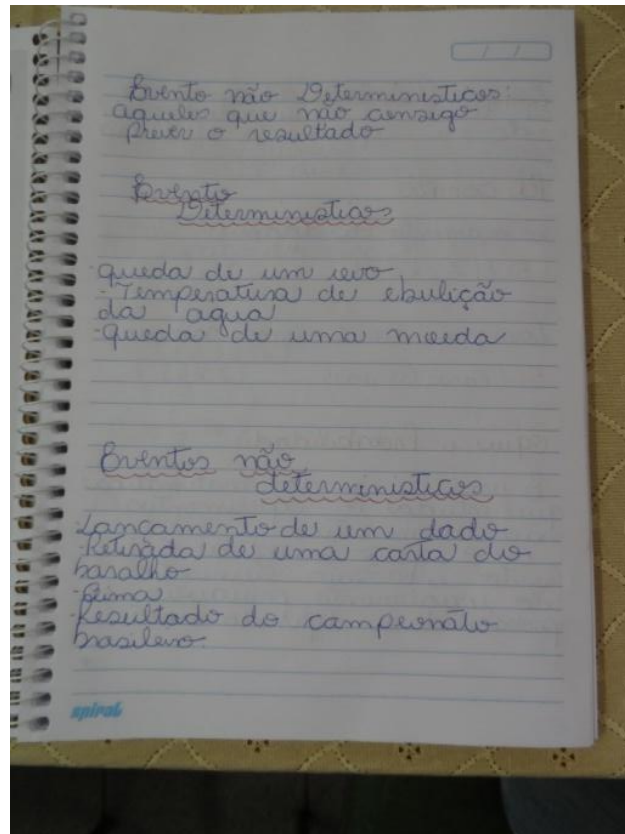 Evento não Deterministicos:
aqueles que não consigo
prever o resultado
Evento
Deterministicos
-queda de um
-Temperatura de ebulição
da agua
-queda de uma moeda
Eventos não
deterministicos
-Lançamento de um dado
-Retirada de uma carta do
baralho
-Resultado do campeonato
brasileiro.
spiral